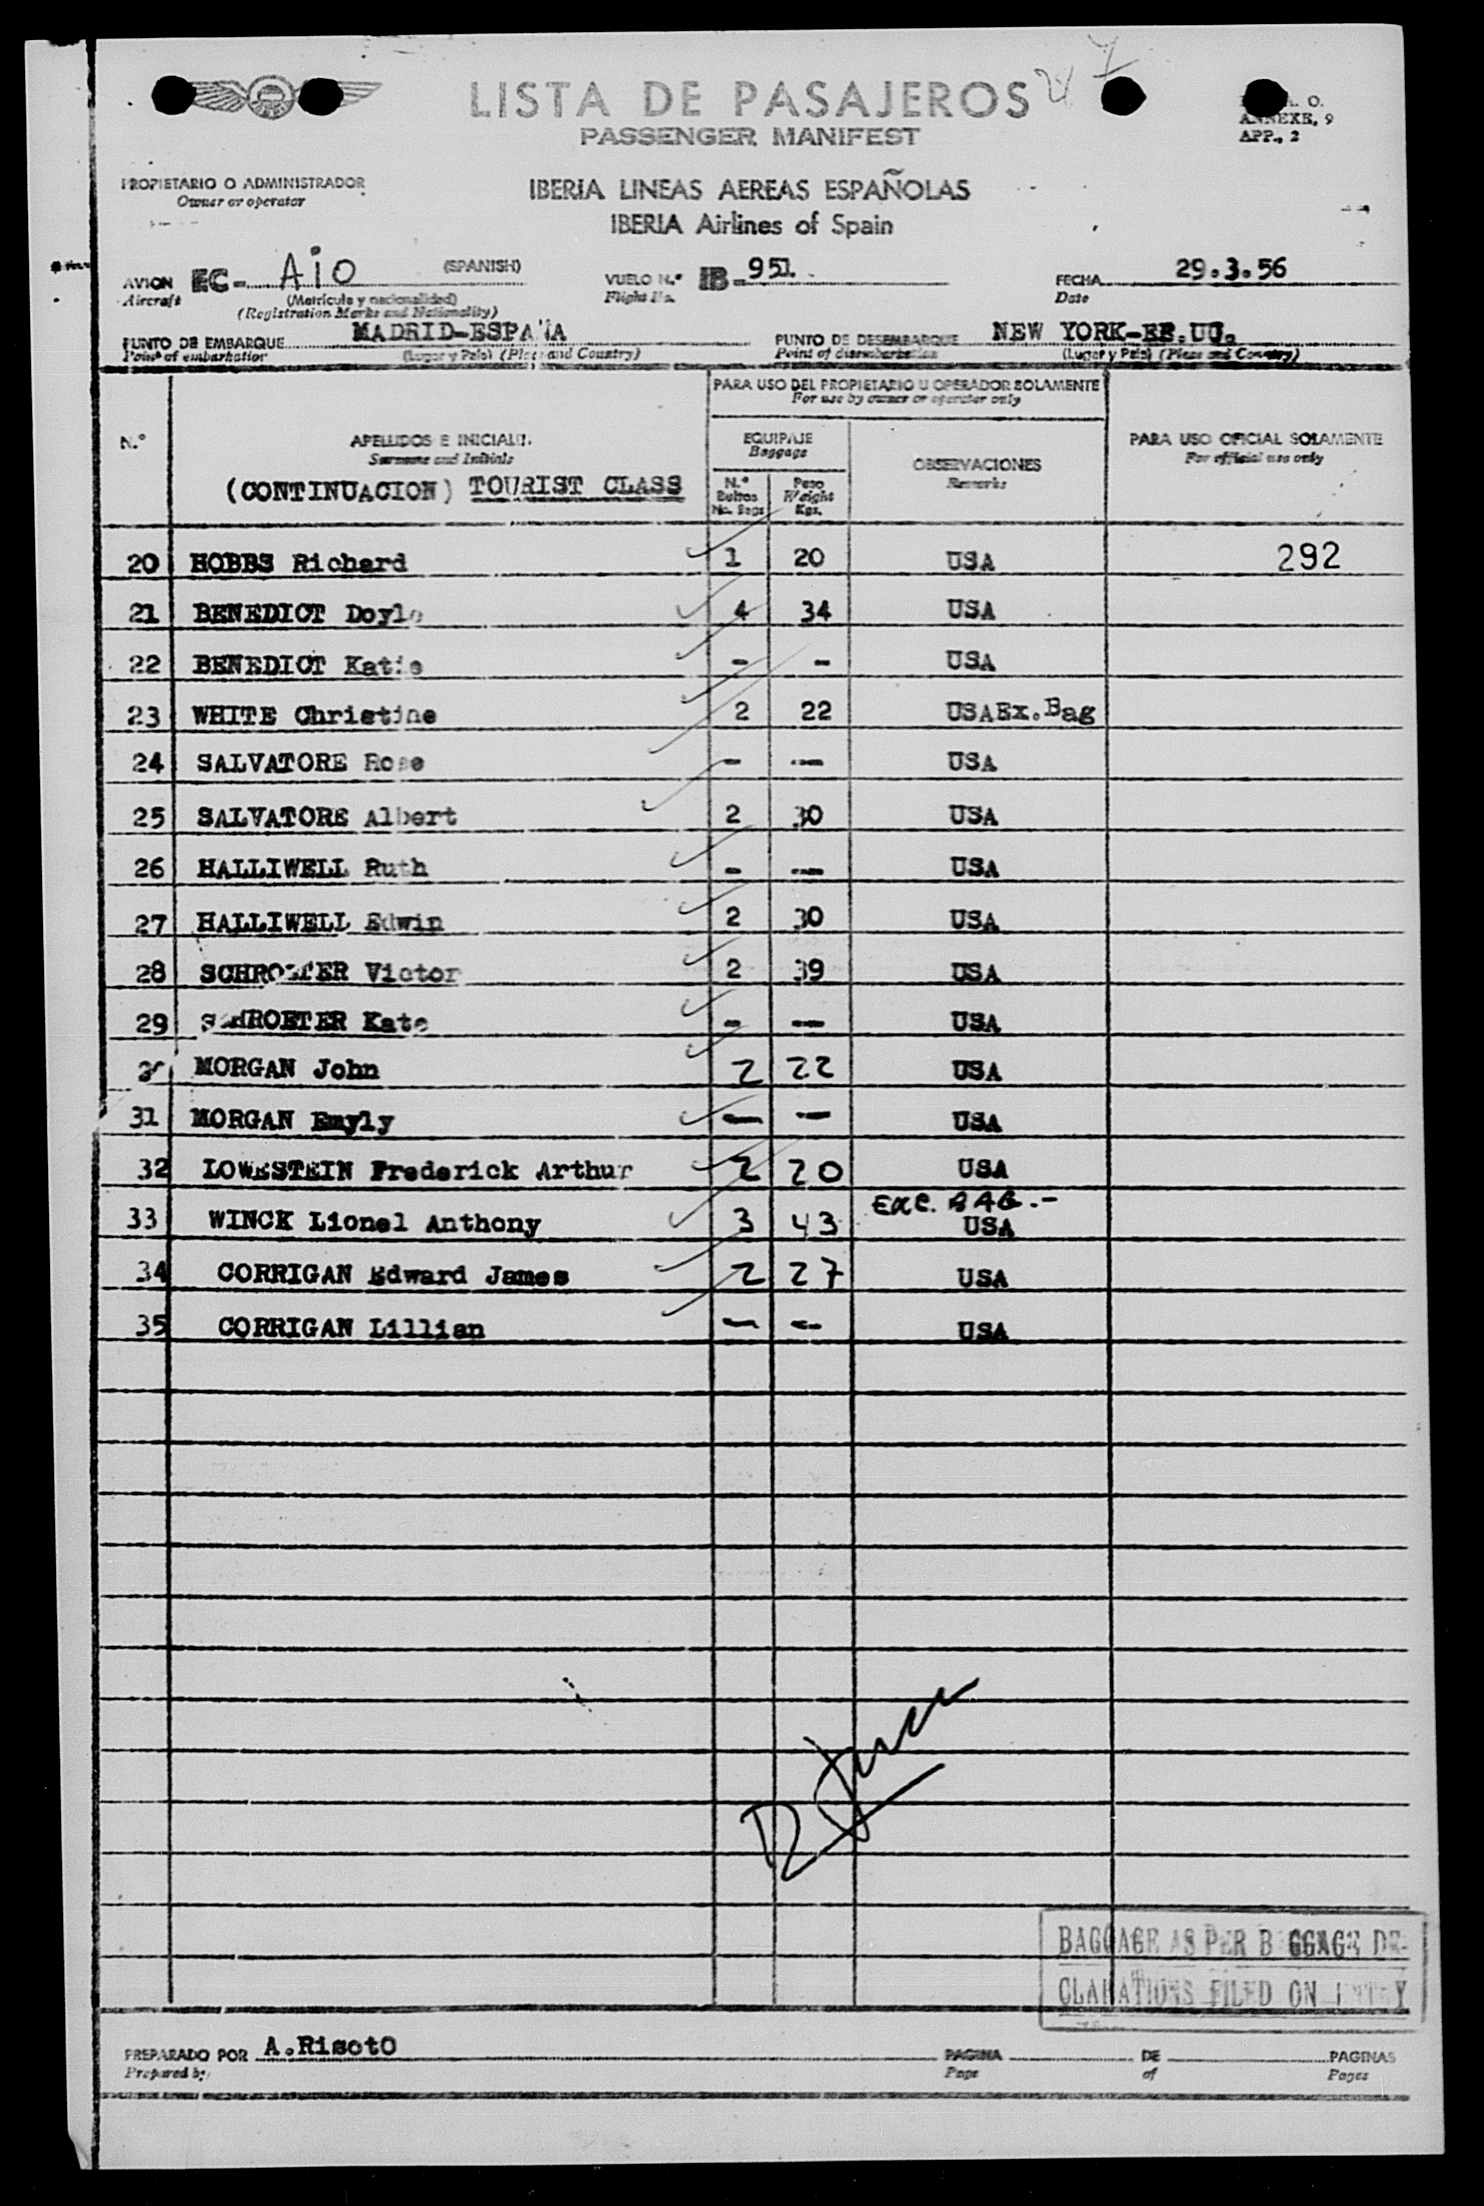 LISTA DE PASAJEROS
PASSENGER MANIFEST
A. O.
ANNEXE, 9
APP., 2
PROPIETARIO O ADMINISTRADOR
Owner or operator
IBERIA LINEAS AEREAS ESPAÑOLAS
IBERIA Airlines of Spain
AVION EC- AiO (SPANISH) VUELO N.º IB-951. FECHA 29.3.56
Aircraft (Matrícula y nacionalidad) Flight No. Date
(Registration Marks and Nationality)
PUNTO DE EMBARQUE MADRID-ESPAÑA PUNTO DE DESEMBARQUE NEW YORK-EE.UU.
Point of embarkation (Lugar y País) (Place and Country) Point of disembarkation (Lugar y País) (Place and Country)
PARA USO DEL PROPIETARIO U OPERADOR SOLAMENTE
For use by owner or operator only
N.º APELLIDOS E INICIALES. EQUIPAJE OBSERVACIONES PARA USO OFICIAL SOLAMENTE
Surname and Initials Baggage Remarks For official use only
(CONTINUACION) TOURIST CLASS N.º Bultos No. Bags Peso Weight Kgs.
20 HOBBS Richard 1 20 USA 292
21 BENEDICT Doyle 4 34 USA
22 BENEDICT Katie - - USA
23 WHITE Christine 2 22 USAEx.Bag
24 SALVATORE Rose - -- USA
25 SALVATORE Albert 2 30 USA
26 HALLIWELL Ruth - -- USA
27 HALLIWELL Edwin 2 30 USA
28 SCHROETER Victor 2 39 USA
29 SCHROETER Kate - -- USA
30 MORGAN John 2 22 USA
31 MORGAN Emyly - - USA
32 LOWESTEIN Frederick Arthur 2 20 USA
33 WINCK Lionel Anthony 3 43 Exc. BAG.- USA
34 CORRIGAN Edward James 2 27 USA
35 CORRIGAN Lillian - - USA
BAGGAGE AS PER BAGGAGE DE-
CLARATIONS FILED ON ENTRY
PREPARADO POR A.RisotO PAGINA DE PAGINAS
Prepared by Page of Pages